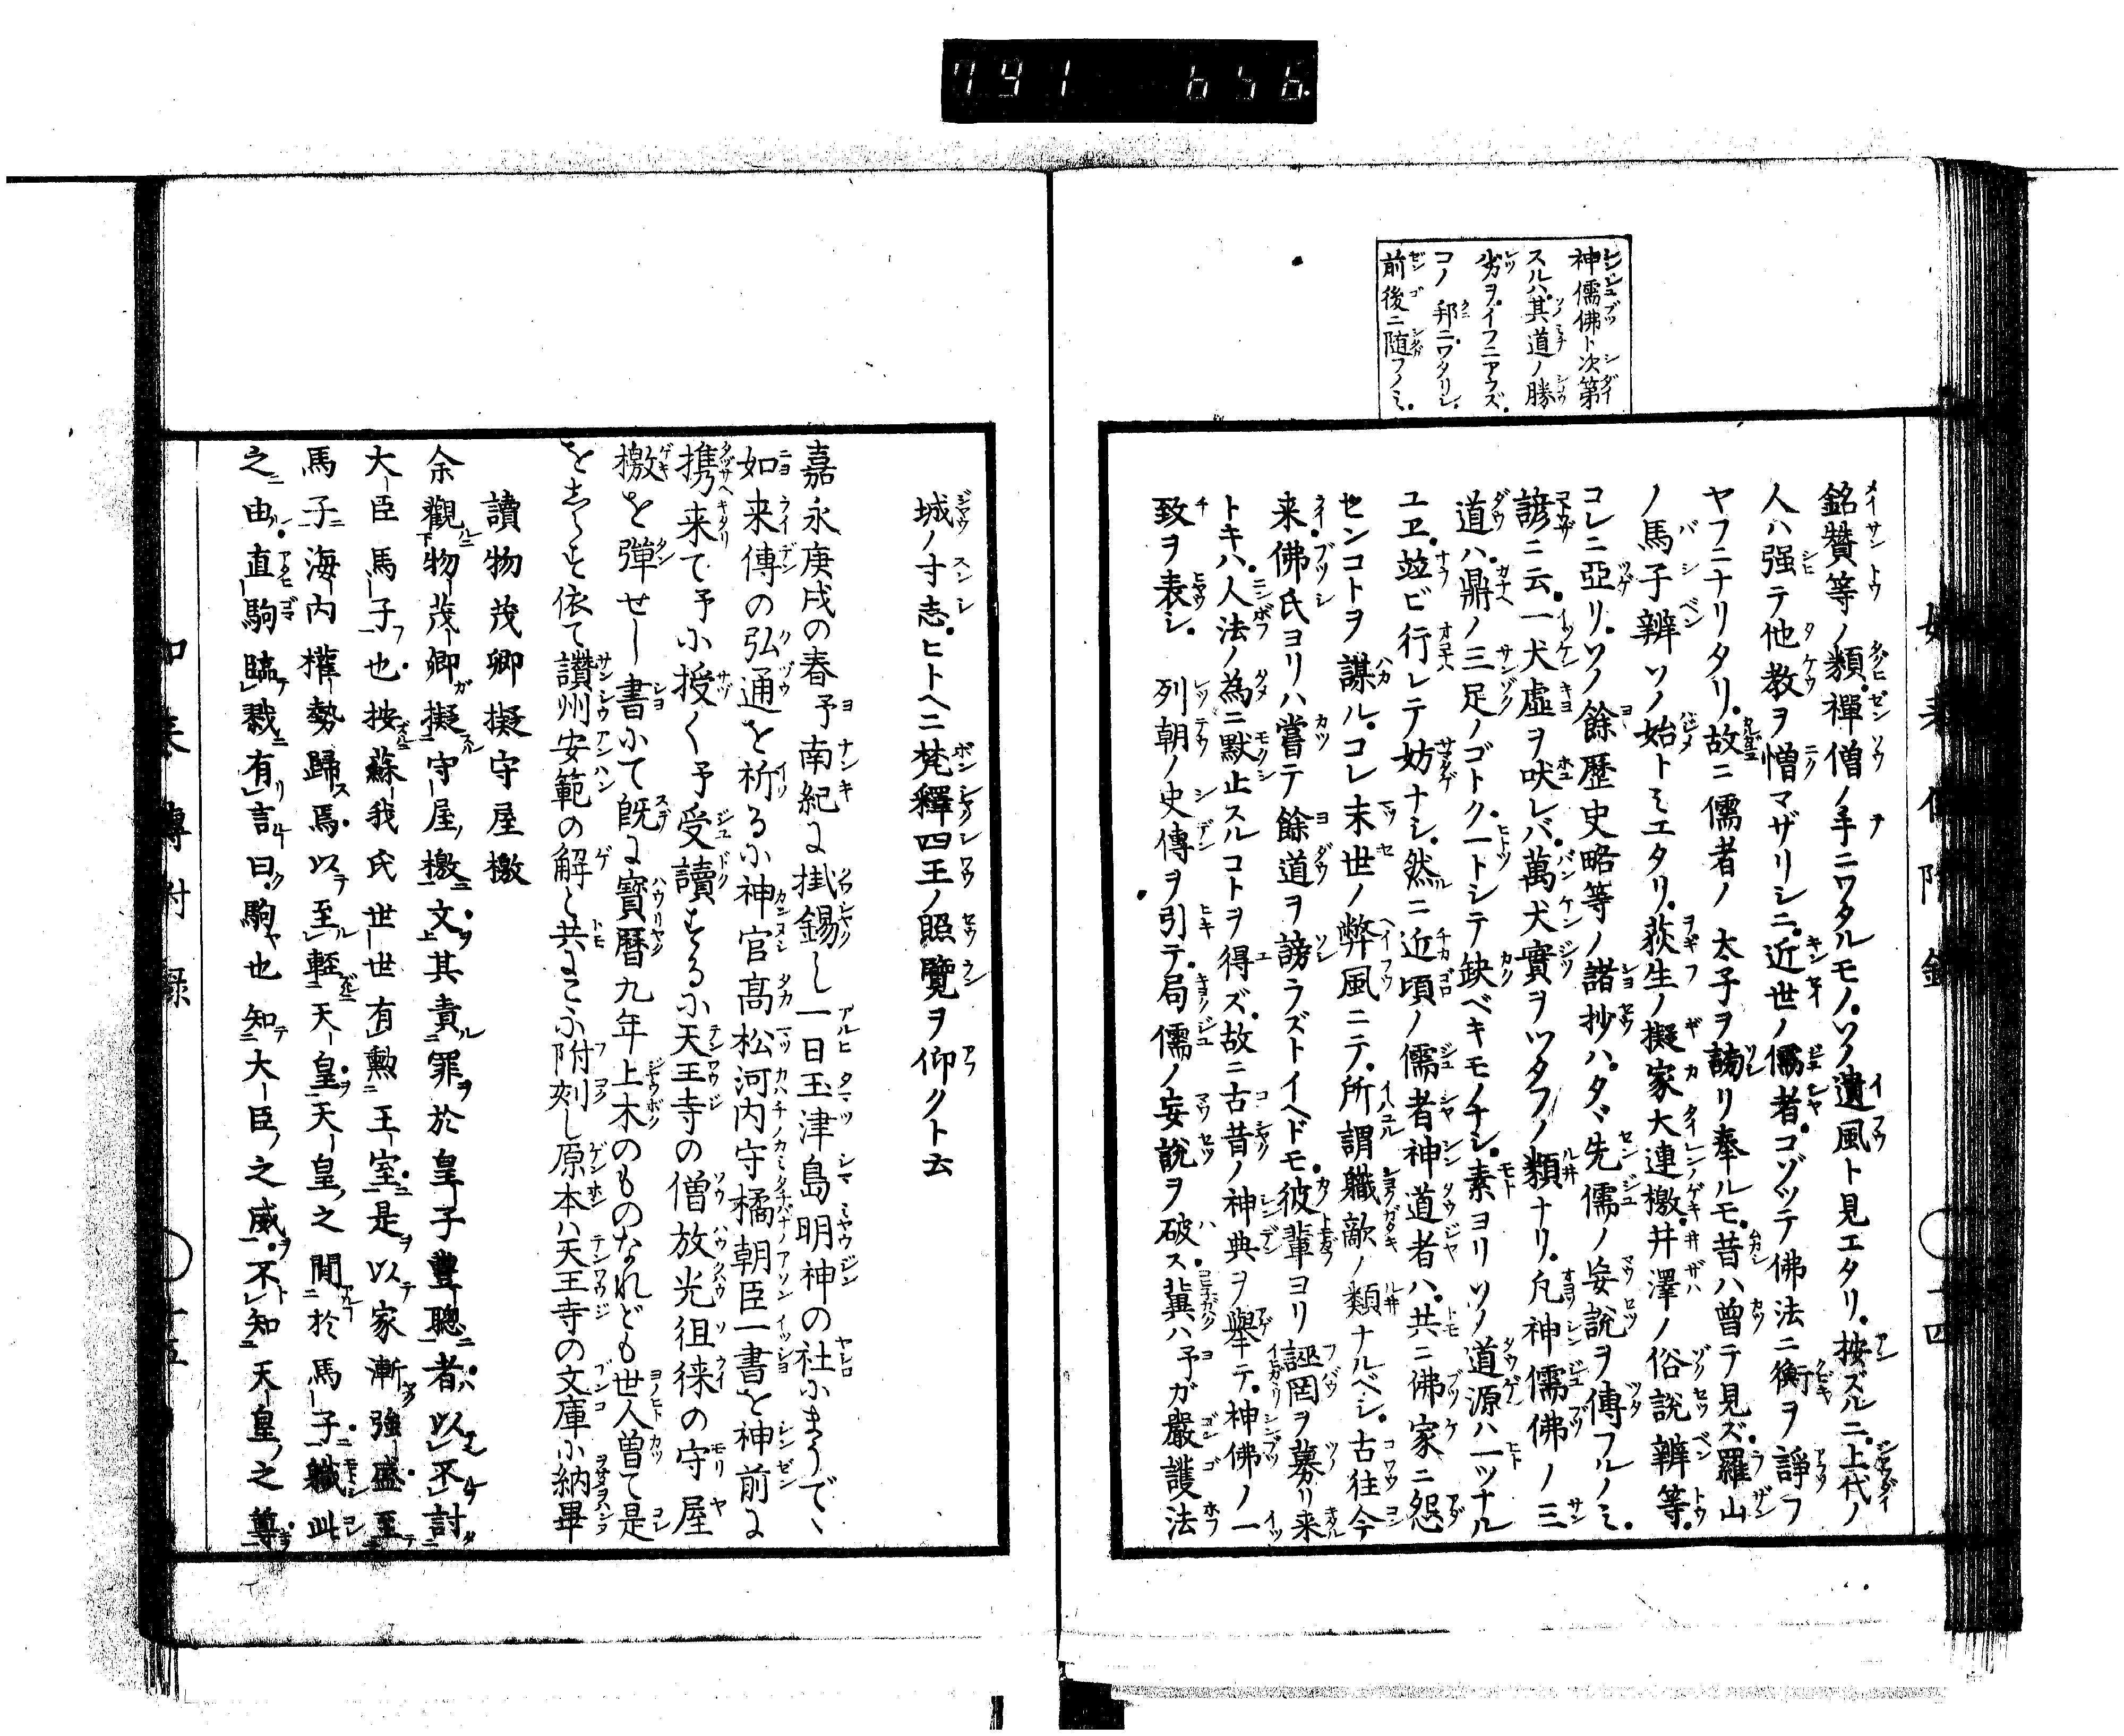 791 656
神儒佛ト次第
スルハ其道ノ勝
劣ヲイフニアラズ
コノ邦ニワタリシ
前後ニ随フノミ
銘贊等ノ類禪僧ノ手ニワタルモノソノ遺風ト見エタリ按ズルニ上代ノ
人ハ强テ他教ヲ憎マザリシニ近世ノ儒者コゾッテ佛法ニ衡ヲ諍フ
ヤフニナリタリ故ニ儒者ノ 太子ヲ謗リ奉ルモ昔ハ曾テ見ズ羅山
ノ馬子辨ソノ始トミエタリ荻生ノ擬家大連檄井澤ノ俗説辨等
コレニ亞リソノ餘歷史略等ノ諸抄ハタヾ先儒ノ妄說ヲ傳フルノミ
諺ニ云一犬虛ヲ吠レバ萬犬實ヲツタフノ類ナリ凡神儒佛ノ三
道ハ鼎ノ三足ノゴトク一トシテ缺ベキモノナシ素ヨリソノ道源ハ一ツナル
ユヱ竝ビ行レテ妨ナシ然ルニ近頃ノ儒者神道者ハ共ニ佛家ニ怨
センコトヲ謀ルコレ末世ノ弊風ニテ所謂職敵ノ類ナルベシ古往今
来佛氏ヨリハ嘗テ餘道ヲ謗ラズトイヘドモ彼輩ヨリ誣罔ヲ募リ来
トキハ人法ノ為ニ默止スルコトヲ得ズ故ニ古昔ノ神典ヲ舉テ神佛ノ一
致ヲ表シ 列朝ノ史傳ヲ引テ局儒ノ妄說ヲ破ス冀ハ予ガ嚴護法
如来傳附錄 十四
城ノ寸志ヒトヘニ梵釋四王ノ照覽ヲ仰クト云
嘉永庚戌の春予南紀に掛錫し一日玉津島明神の社にまうで、
如来傳の弘通を祈るに神官髙松河内守橘朝臣一書を神前に
携来て予に授く予受讀するに天王寺の僧放光徂徠の守屋
檄を彈せし書にて既に寶曆九年上木のものなれども世人曽て是
をしらず依て讃州安範の解と共にこゝに附刻し原本ハ天王寺の文庫に納畢
讀物茂卿擬守屋檄
余觀物茂卿擬守屋檄文其責罪於皇子豐聰者以不討
大臣馬子也按蘇我氏世世有勲王室是以家漸強盛至
馬子海内權勢歸焉以至輕天皇天皇之間於馬子職此
之由直駒臨戮有言曰駒也知大臣之威不知天皇之尊
如来傳附録 十五